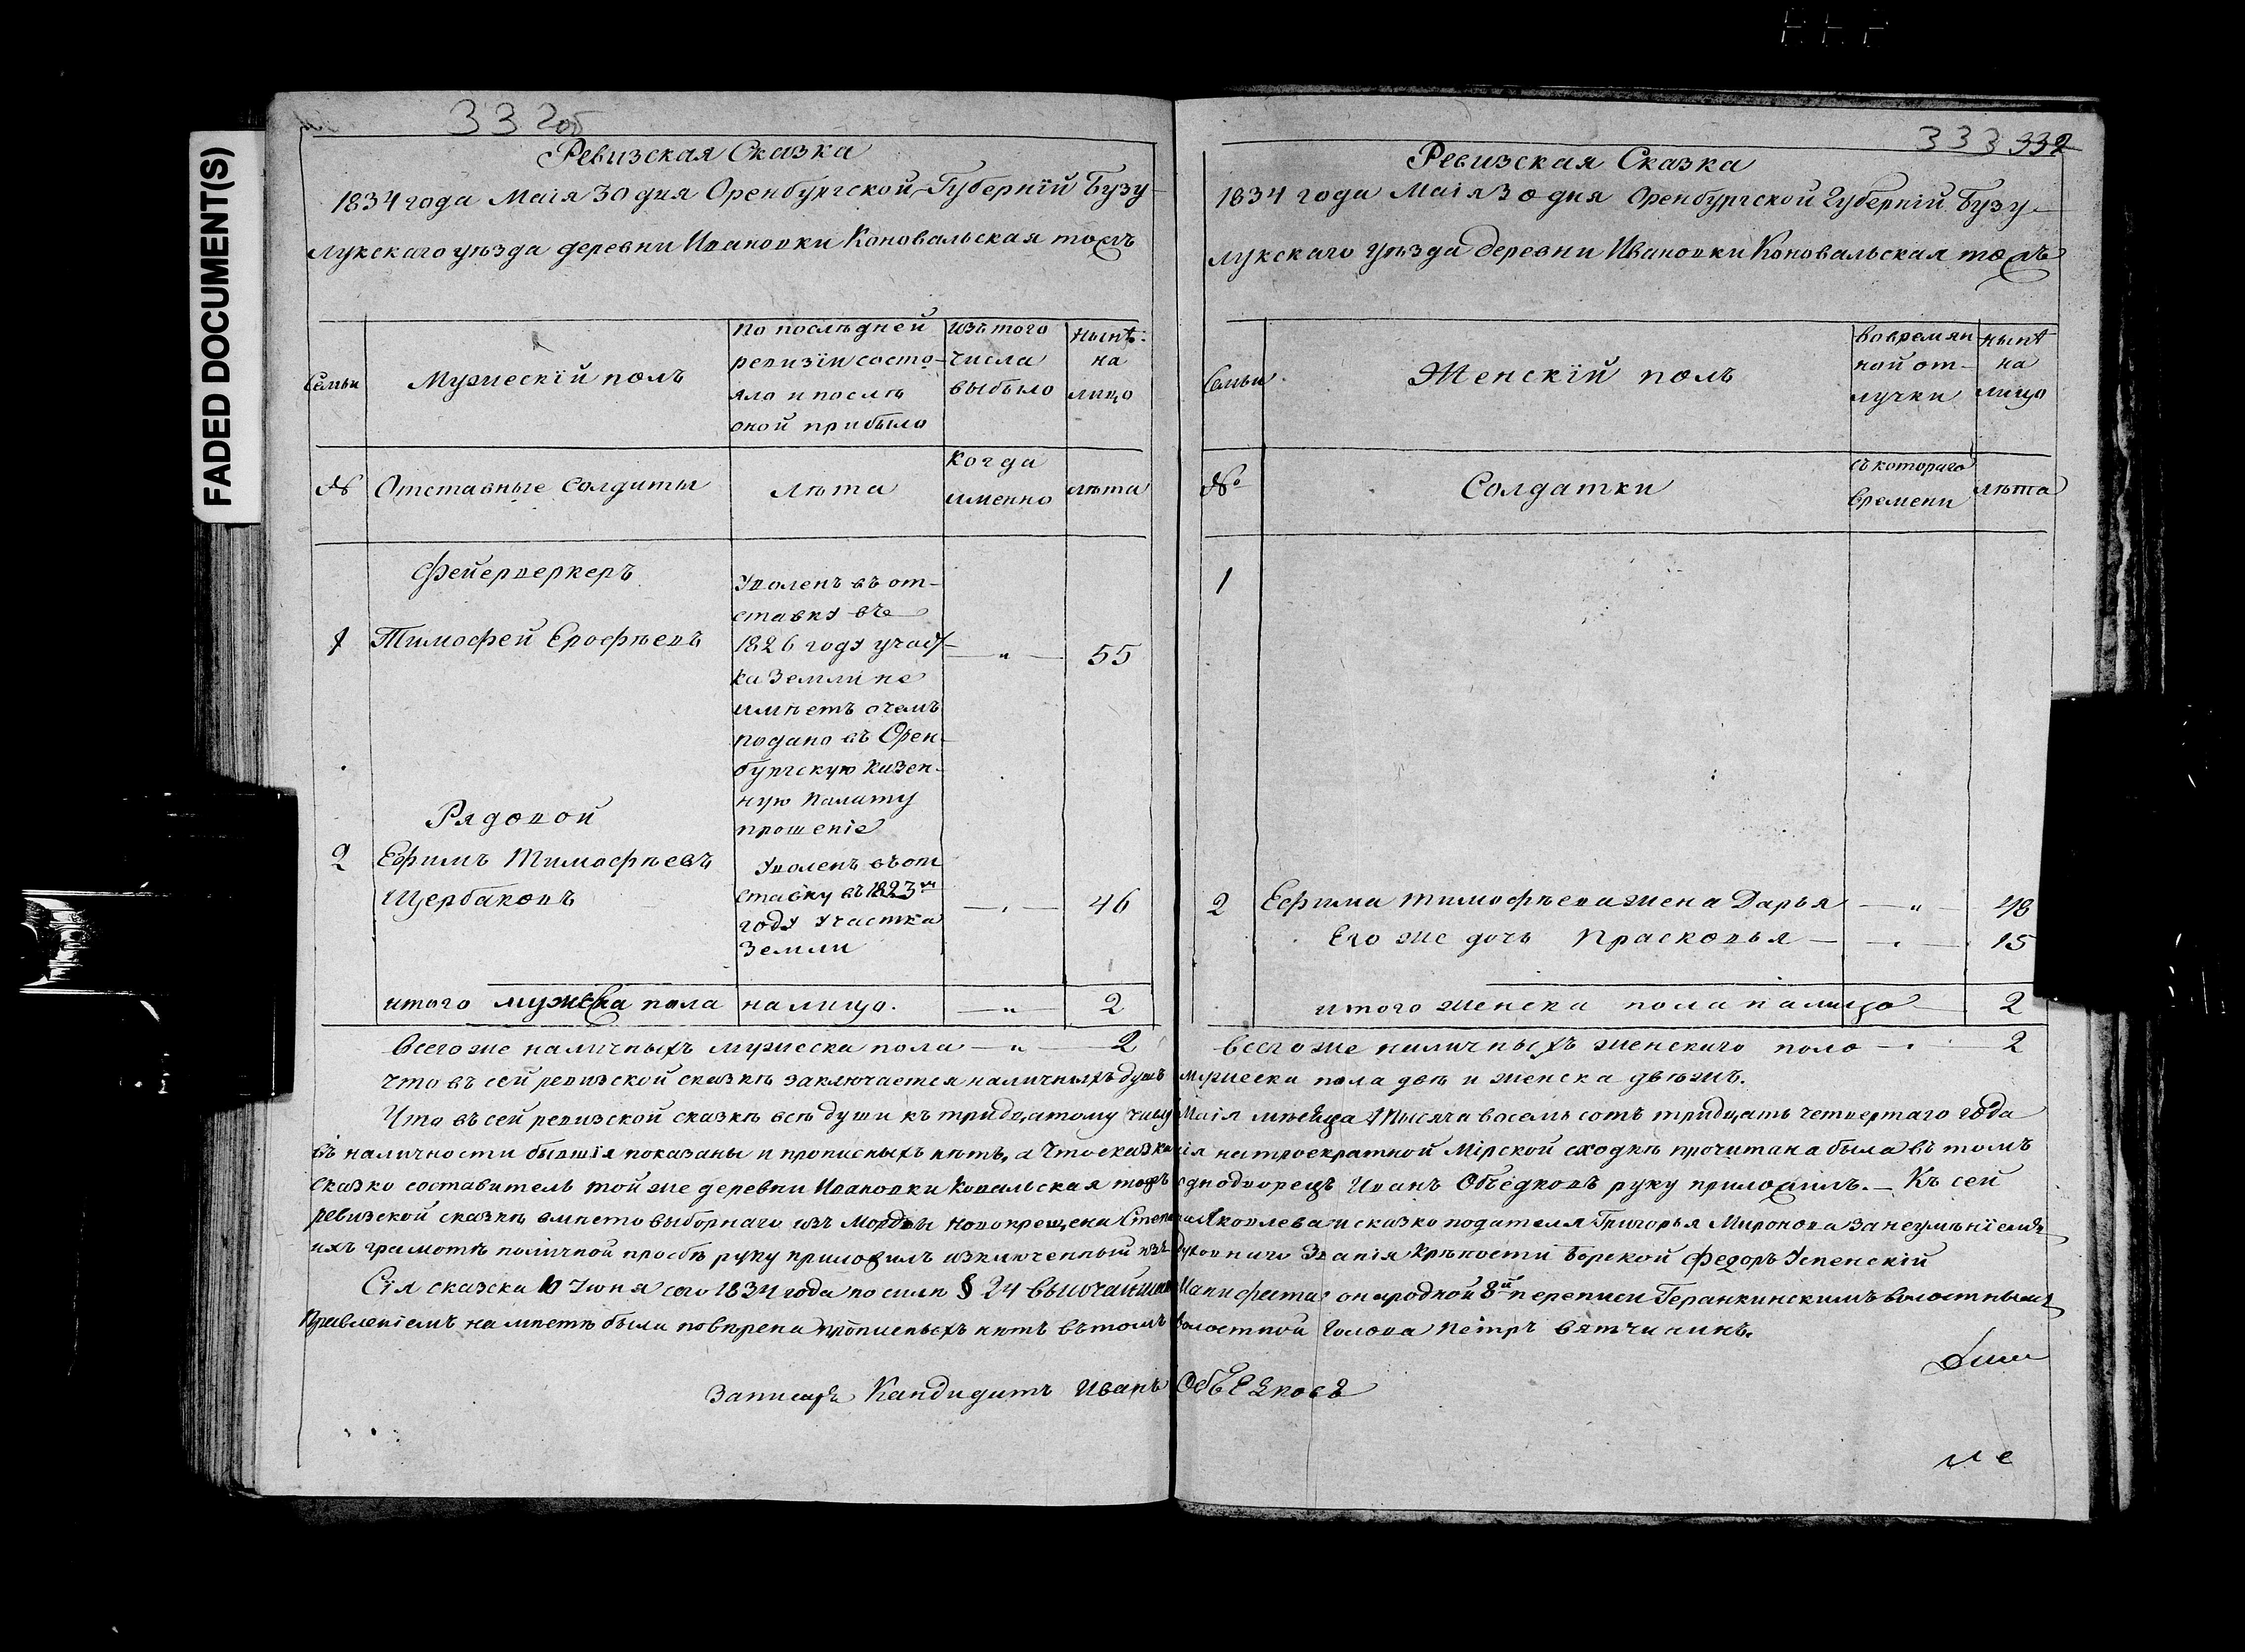 FADED DOCUMENT(S)
332об
Ревизская Сказка
1834 года Маiя 30 дня Оренбургской Губернїй Бузу-
лукскаго уѣзда деревни Ивановки Коновальская тожъ
Семьи
Мужескїй полъ
По послѣдней
ревизїи состо-
яло и послѣ
оной прибыло
Изъ того
числа
выбыло
Нынѣ
на
лицо
№
Отставные Солдаты
лѣта
Когда
именно
лѣта
Фейерверкеръ
1
Тимофей Ерофѣевъ
Уволенъ въ от-
ставку въ
1826 году участ-
ка земли не
имѣетъ о чемъ
подано въ Орен-
бургскую Казен-
ную Палату
прошенiе
55
Рядовой
2
Ефимъ Тимофѣевъ
Щербаковъ
Уволенъ въ от
ставку въ 1823м
году участка
Земли
46
итого мужска пола на лицо. 2
Всего же наличныхъ мужеска пола 2
333 332
Ревизская Сказка
1834 года Маiя 30 дня Оренбургской Губернїй Бузу-
лукскаго уѣзда деревни Ивановки Коновальская тожъ
Семьи
Женскїй полъ
Во времян
ной от-
лучки
Нынѣ
на
лицо
№
Солдатки
съ котораго
времени
лѣта
1
2 Ефима Тимофѣева жена Дарья 48
Его же дочь Прасковья 15
итого женска пола на лицо 2
Всего же наличныхъ женскаго поло 2
Что въ сей ревизской сказкѣ заключается наличныхъ душъ мужеска пола двѣ и женска двѣжъ.
Что въ сей ревизской сказкѣ всѣ души къ тридцатому числу Маiя мѣсяца тысяча восемь сотъ тридцать четвертаго года
въ наличности бывшiя показаны и прописныхъ нѣтъ, а что сказка сiя на троекратной Мiрской сходкѣ прочитана была въ томъ
сказко составитель той же деревни Ивановки Ковальская тожъ однодворецъ Иванъ Объедковъ руку приложилъ. — Къ сей
ревизской сказкѣ вмѣсто выборнаго изъ Мордвы новокрещена Степана Яковлева и сказко подателя Григорья Миронова за неумѣнїемъ
ихъ грамотѣ поличной просбѣ руку приложилъ изключенный изъ духовнаго Званiя Крѣпости Борской Федоръ Успенскiй
Сiя сказска 10 Iюня сего 1834 года по силѣ § 24 высочайшаго Манифеста о народной 8й переписи Геранкинскимъ волостнымъ
Правленiемъ на мѣстѣ была повѣрена прописныхъ нѣтъ въ томъ волостной Голова Петръ Вятчининъ.
Записаръ Кандидатъ Иванъ Объедковъ